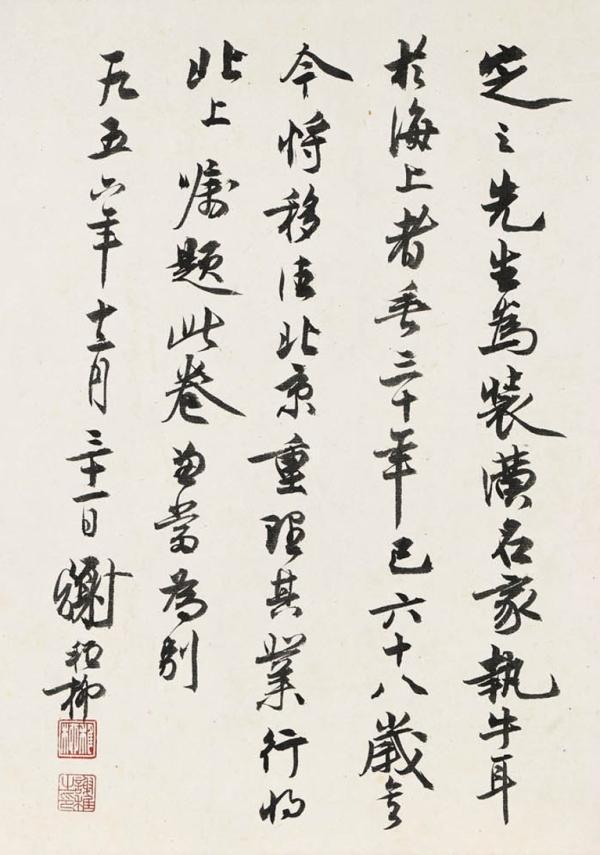 定之先生為裝潢名家執牛耳
於海上者垂三十年已六十八歲矣
今將移住北京重理其業行將
北上嘱題此卷當為別
一九五六年十二月三十一日謝稚柳
稚柳